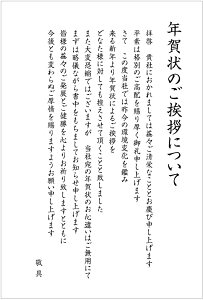 年賀状のご挨拶について
拝啓　貴社におかれましては益々ご清栄なこととお慶び申し上げます
平素は格別のご高配を賜り厚く御礼申し上げます
さて　この度当社では昨今の環境変化を鑑み
来る新年より年賀状によるご挨拶を
どなた様に対しても控えさせて頂くことと致しました
また大変恐縮ではございますが　当社宛の年賀状のお心遣いはご無用にて
まずは略儀ながら書中をもちましてお知らせ申し上げます
皆様の益々のご発展とご健勝を心よりお祈り致しますとともに
今後とも変わらぬご厚情を賜りますようお願い申し上げます
敬具